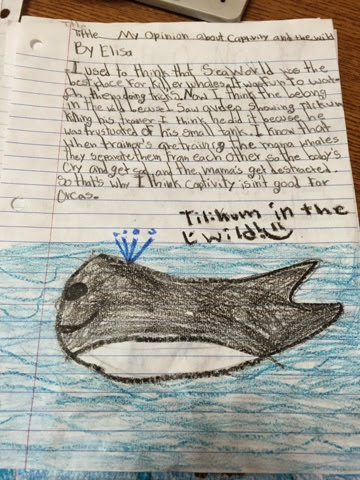 Title
Title My Opinion about Captivity and the wild
By Elisa
I used to think that Sea World was the
best place for killer whales. It was fun to watch
doing tricks. Now I think the belong
in the wild because I saw a video showing tilikum
killing his trainer. I think he did it because he
was frustrated of his small tank. I know that
when trainer's are training the mama whales
they separate them from each other so the baby's
cry and get sad and the mama's get destracted.
So that's why I think captivity isint good for
Orcas.
Tilikum in the
wild!